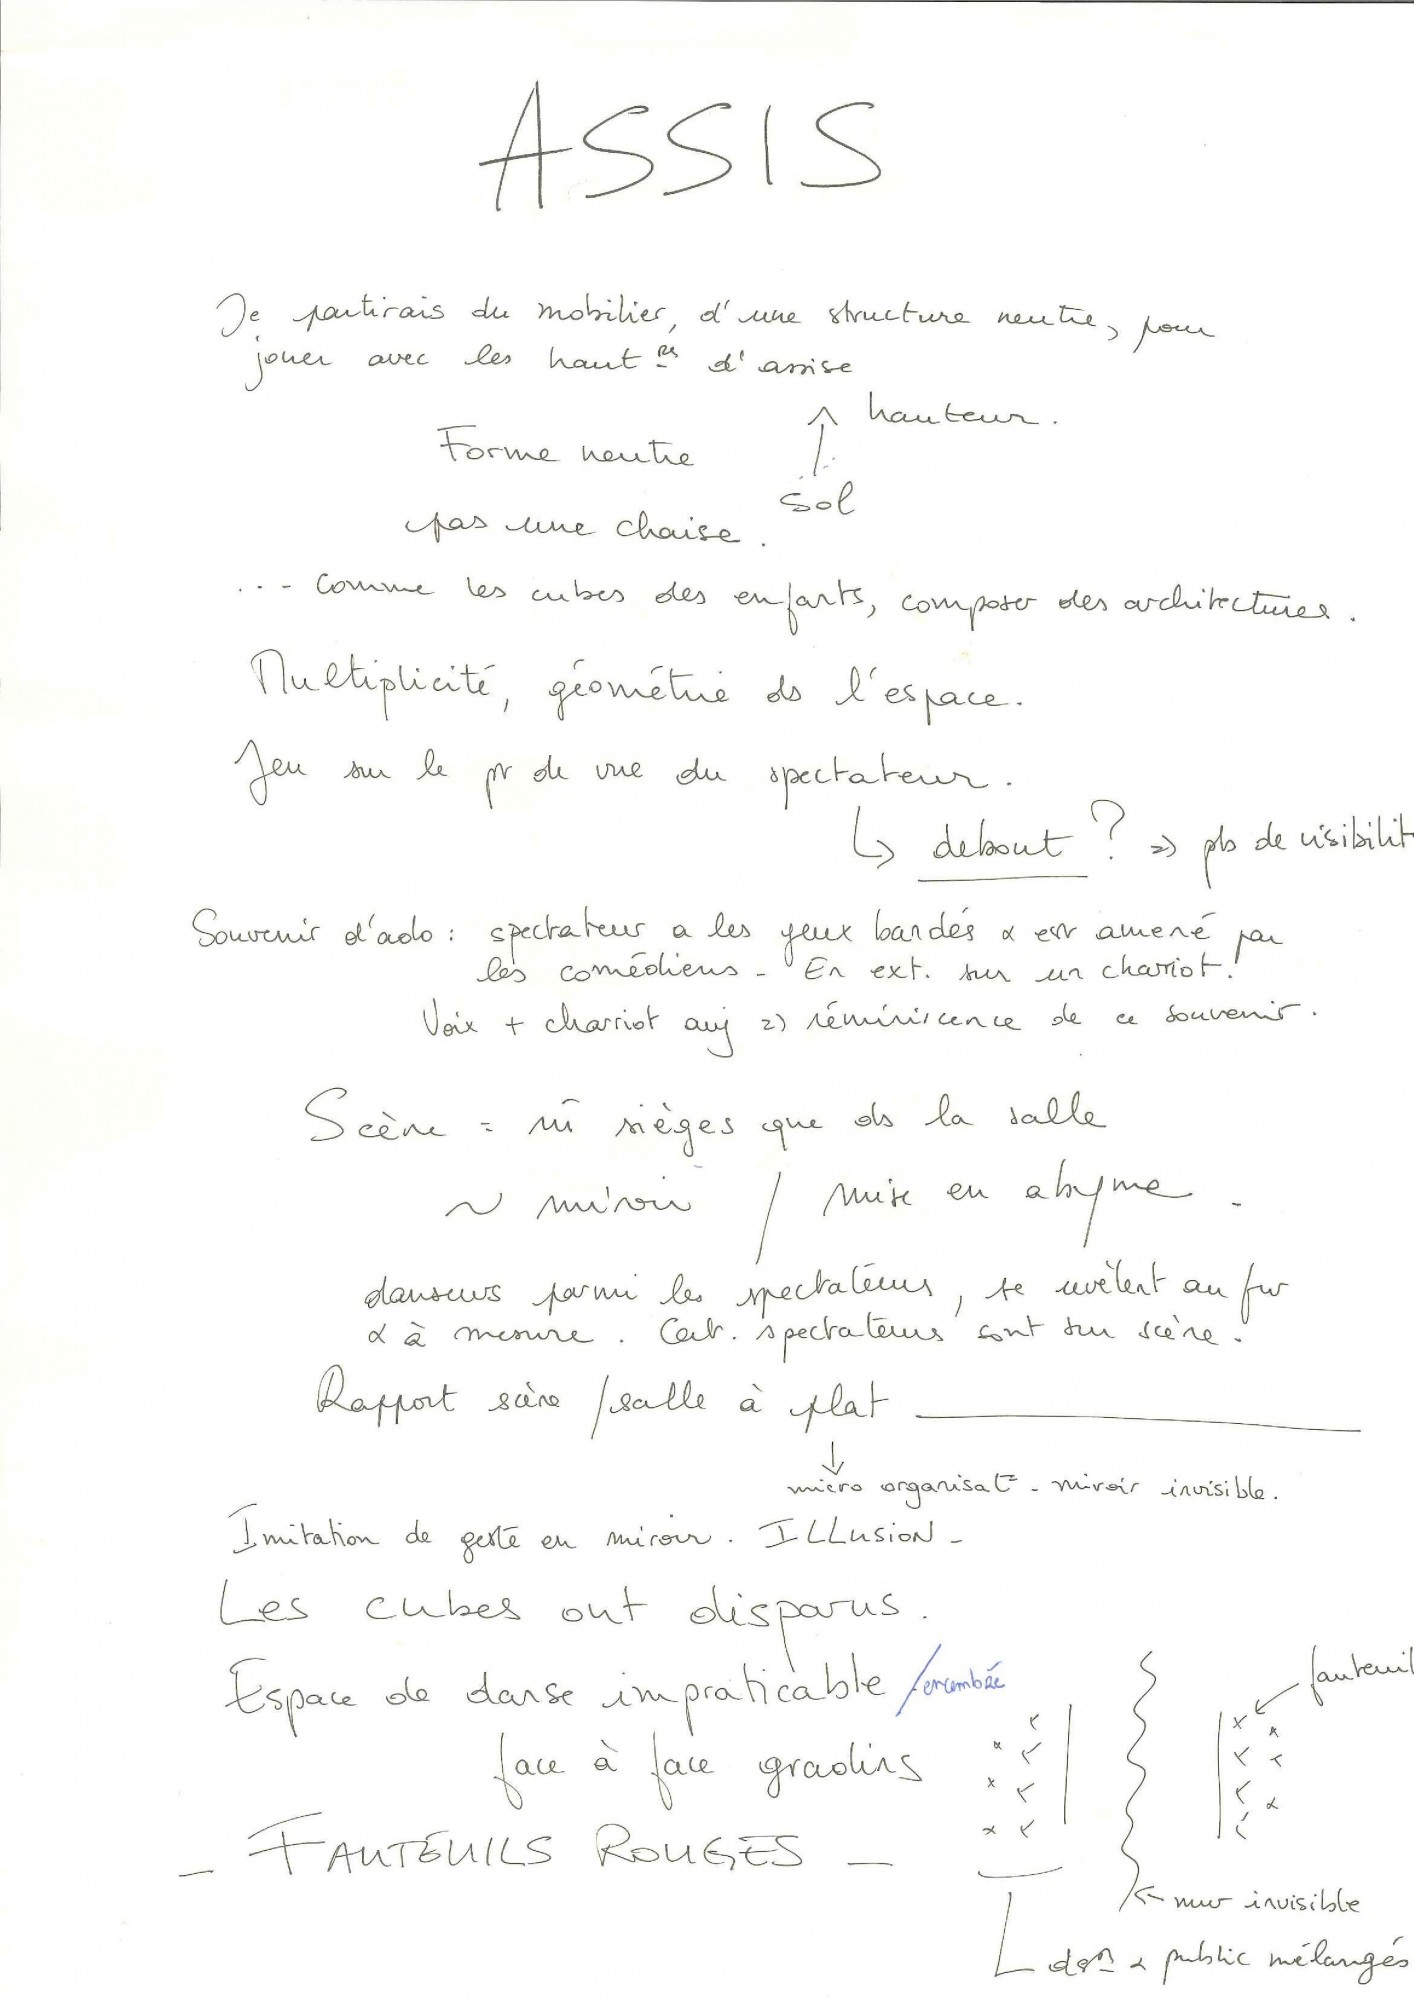 ASSIS
Je partirais du mobilier, d'une structure neutre, pour
jouer avec les haut res d'assise
hauteur.
Forme neutre
sol
pas une chaise.
... comme les cubes des enfants, composer des architectures.
Multiplicité, géométrie ds l'espace.
Jeu sur le pt de vue du spectateur.
↳ debout ? => pb de visibilit
Souvenir d'ado : spectateur a les yeux bandés & est amené par
les comédiens - En ext. sur un chariot.
Voix + charriot auj => réminiscence de ce souvenir.
Scène = m̄ sièges que ds la salle
~ miroir / mise en abyme -
danseurs parmi les spectateurs, se révèlent au fur
& à mesure. Cert. spectateurs sont sur scène.
Rapport scène / salle à plat
↓
micro organisat° - miroir invisible.
Imitation de geste en miroir. ILLusion -
Les cubes ont disparus.
Espace de danse impraticable /encombrée
fauteuil
face à face gradins
- FAUTEUILS ROUGES -
← mur invisible
& public mélangés